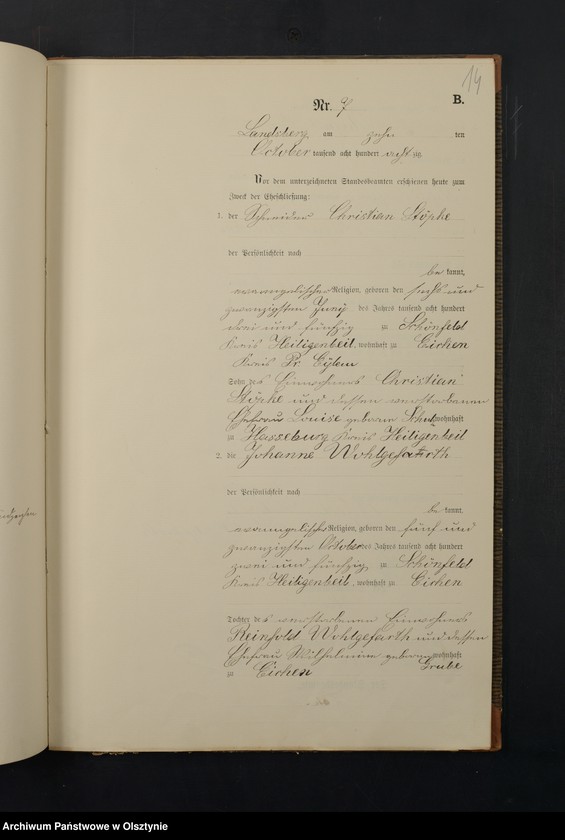 14
B.
Nr. 7
Landsberg, am zehn ten
October tausend acht hundert acht zig.
Vor dem unterzeichneten Standesbeamten erschienen heute zum
Zweck der Eheschließung:
1. der Schneider Christian Stöphe
der Persönlichkeit nach
be kannt,
evangelischer Religion, geboren den sechs und
zwanzigsten Juny des Jahres tausend acht hundert
drei und fünfzig zu Schönfeld
Kreis Heiligenbeil, wohnhaft zu Eichen
Kreis Pr. Eylau
Sohn des Einwohners Christian
Stöphe und dessen verstorbenen
Ehefrau Louise geborne wohnhaft
zu Hasseburg Kreis Heiligenbeil
2. die Johanne Wohlgefarth
der Persönlichkeit nach
be kannt,
evangelischer Religion, geboren den fünf und
zwanzigsten October des Jahres tausend acht hundert
zwei und fünfzig zu Schönfeld
Kreis Heiligenbeil, wohnhaft zu Eichen
Tochter des verstorbenen Einwohners
Reinhold Wohlgefarth und dessen
Ehefrau Wilhelmine geborne Grube wohnhaft
zu Eichen
Archiwum Państwowe w Olsztynie